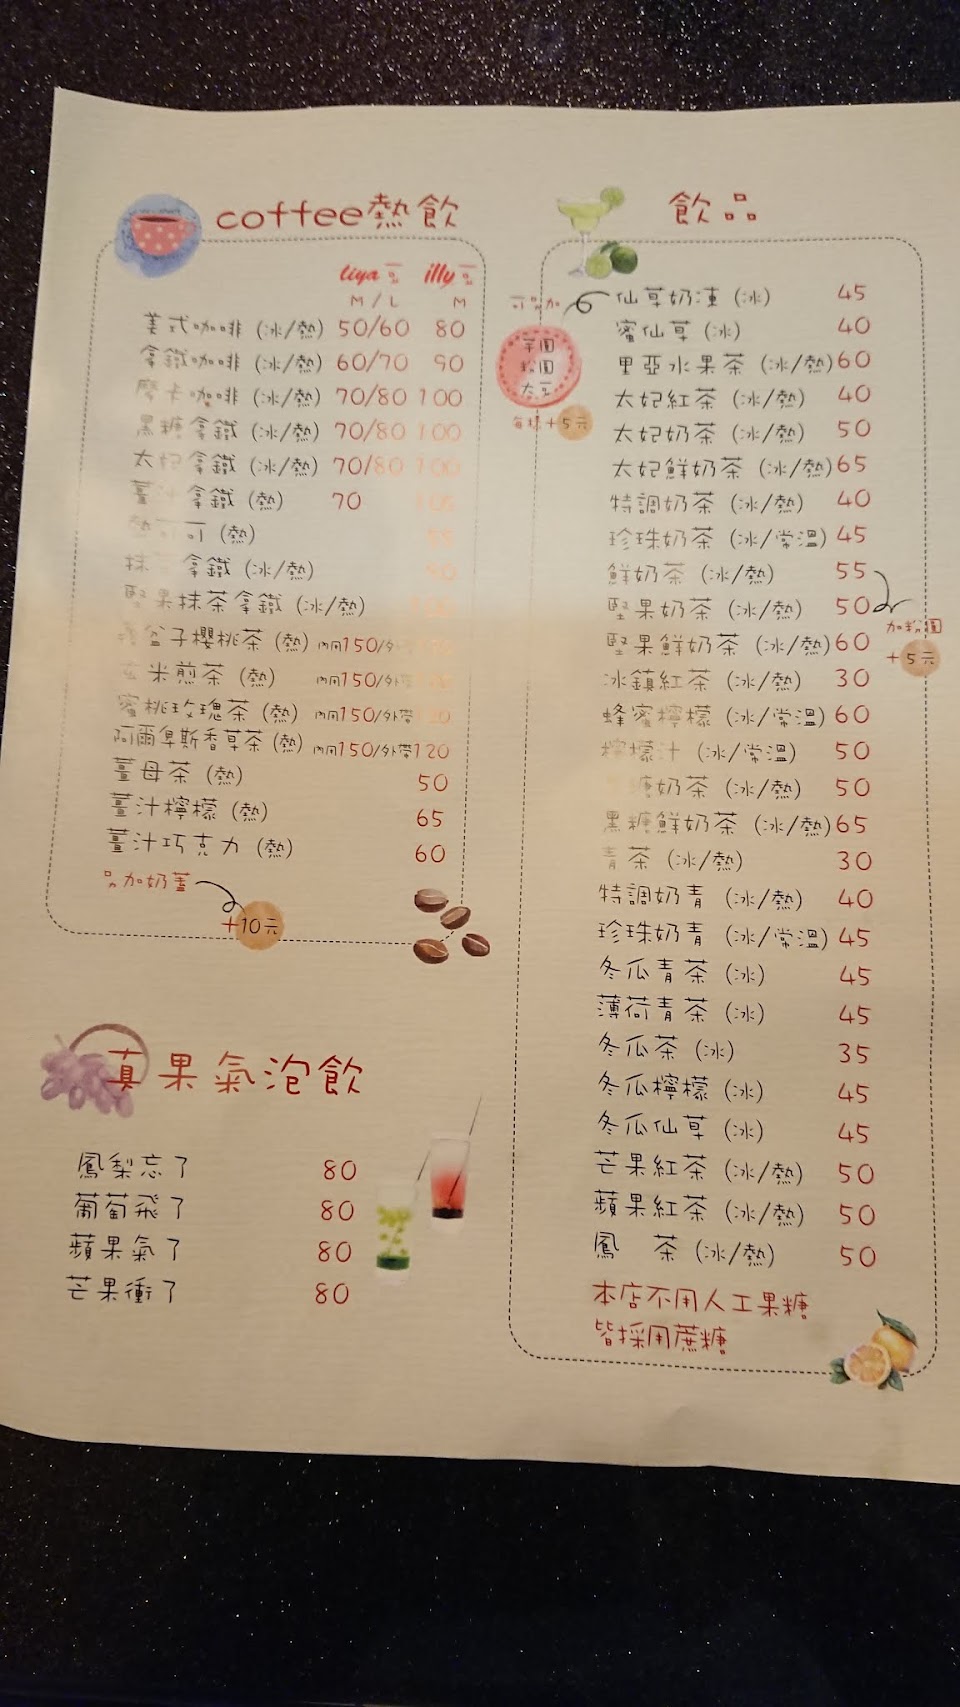 coffee熱飲
liya豆 illy豆
M / L M
美式咖啡 (冰/熱) 50/60 80
拿鐵咖啡 (冰/熱) 60/70 90
摩卡咖啡 (冰/熱) 70/80 100
黑糖拿鐵 (冰/熱) 70/80 100
太妃拿鐵 (冰/熱) 70/80 100
薑汁拿鐵 (熱) 70
熱可可 (熱)
抹茶拿鐵 (冰/熱)
堅果抹茶拿鐵 (冰/熱)
覆盆子櫻桃茶 (熱) 內用150/外帶
玄米煎茶 (熱) 內用150/外帶
蜜桃玫瑰茶 (熱) 內用150/外帶120
阿爾卑斯香草茶 (熱) 內用150/外帶120
薑母茶 (熱) 50
薑汁檸檬 (熱) 65
薑汁巧克力 (熱) 60
加奶蓋
+10元
真果氣泡飲
鳳梨忘了 80
葡萄飛了 80
蘋果氣了 80
芒果衝了 80
飲品
仙草奶凍 (冰) 45
蜜仙草 (冰) 40
里亞水果茶 (冰/熱) 60
太妃紅茶 (冰/熱) 40
太妃奶茶 (冰/熱) 50
太妃鮮奶茶 (冰/熱) 65
特調奶茶 (冰/熱) 40
珍珠奶茶 (冰/常溫) 45
鮮奶茶 (冰/熱) 55
堅果奶茶 (冰/熱) 50
堅果鮮奶茶 (冰/熱) 60
冰鎮紅茶 (冰/熱) 30
蜂蜜檸檬 (冰/常溫) 60
檸檬汁 (冰/常溫) 50
糖奶茶 (冰/熱) 50
黑糖鮮奶茶 (冰/熱) 65
青茶 (冰/熱) 30
特調奶青 (冰/熱) 40
珍珠奶青 (冰/常溫) 45
冬瓜青茶 (冰) 45
薄荷青茶 (冰) 45
冬瓜茶 (冰) 35
冬瓜檸檬 (冰) 45
冬瓜仙草 (冰) 45
芒果紅茶 (冰/熱) 50
蘋果紅茶 (冰/熱) 50
鳳 茶 (冰/熱) 50
芋圓
粉圓
大豆
每樣+5元
加粉圓
+5元
本店不用人工果糖
皆採用蔗糖